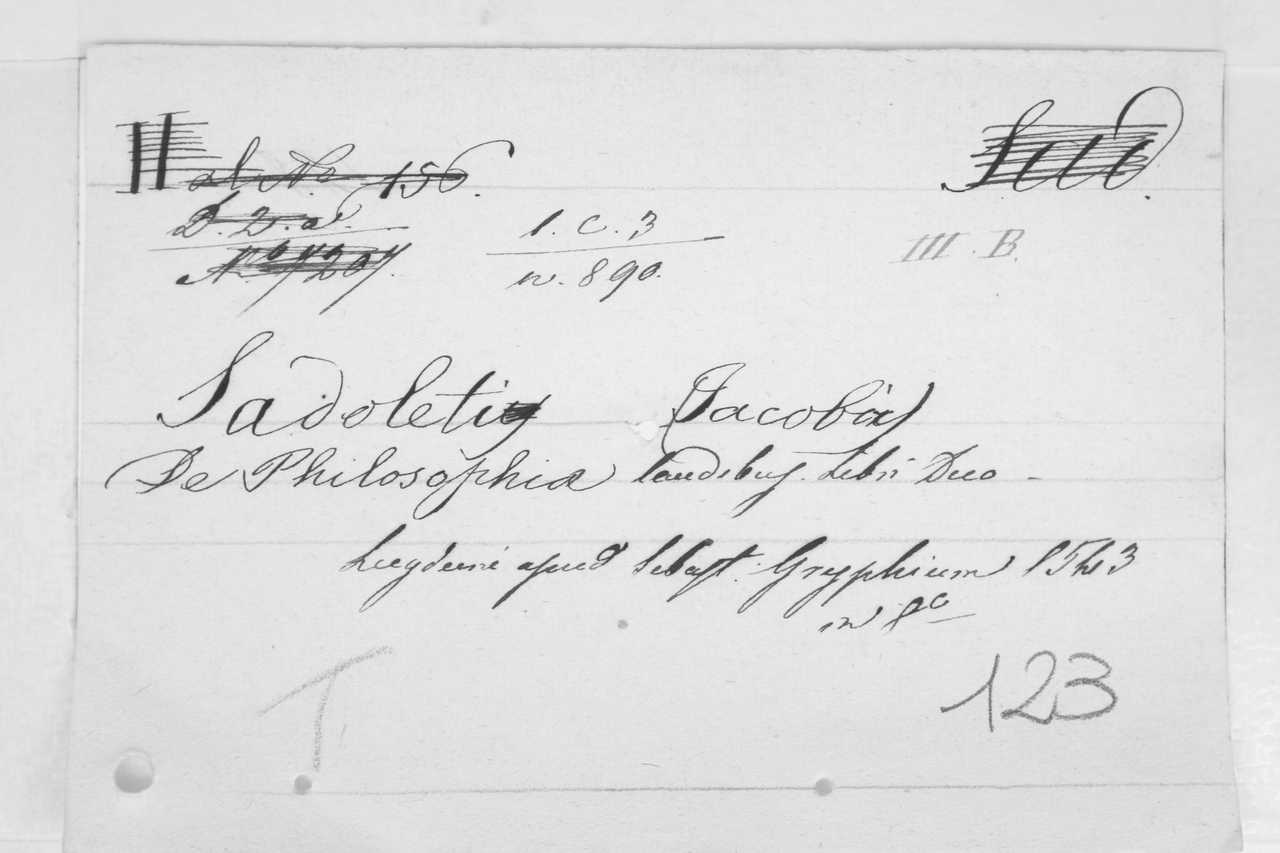 156.
D. 2. a.
I. C. 3
n. 890.
III. B.
Sadoleti (Jacobi)
De Philosophia laudibus. Libri Duo -
Lugduni apud Sebast. Gryphium 1543
in 8o
T
123